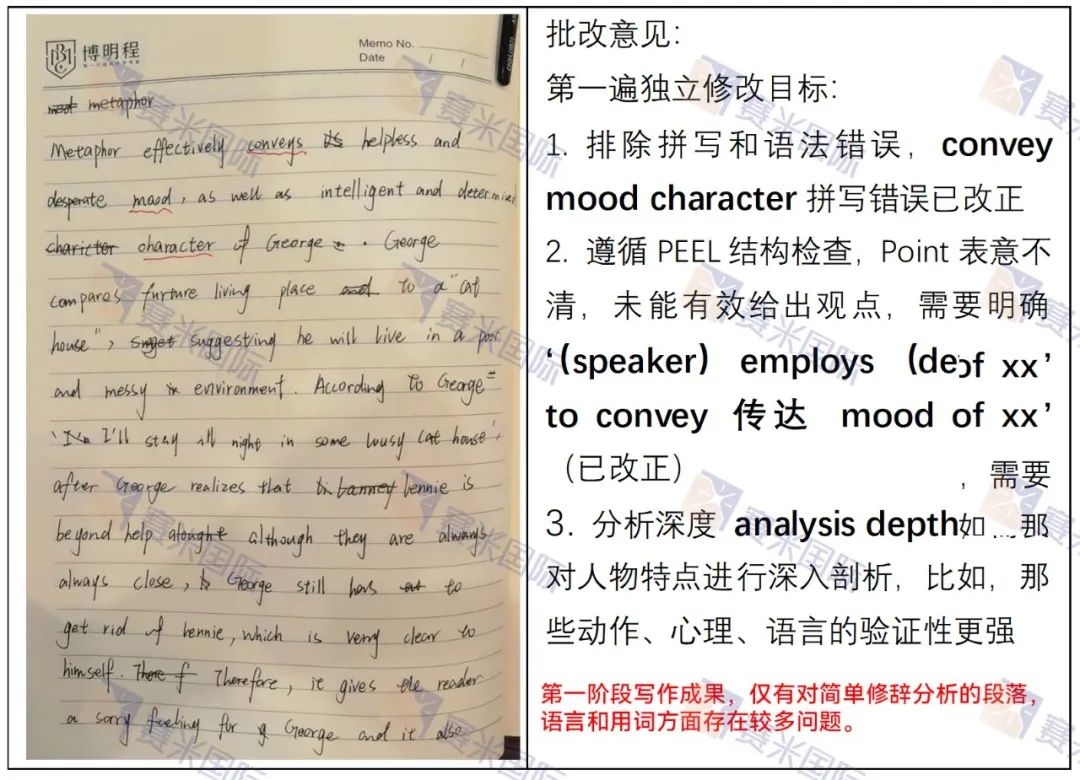 博明程
Memo No.
Date
metaphor
Metaphor effectively conveys its helpless and
desperate maod, as well as intelligent and determined
charictor oharacter of George . George
compares furture living place and to a "cat
house", suget suggesting he will live in a poor
and messy in environment. According to George
'I'm I'll stay all night in some lousy cat house',
after George realizes that banney lennie is
beyond help alought although they are always
always close, George still has to
get rid of lennie, which is verry clear to
himself. There f Therefore, it gives the reader
a sorry feeling for George and it also
批改意见：
第一遍独立修改目标：
1. 排除拼写和语法错误，convey
mood character 拼写错误已改正
2. 遵循 PEEL 结构检查，Point 表意不
清，未能有效给出观点，需要明确
‘（speaker） employs （de of xx’
to convey 传达 mood of xx’
（已改正）
，需要
3. 分析深度 analysis depth如 那
对人物特点进行深入剖析，比如，那
些动作、心理、语言的验证性更强
第一阶段写作成果，仅有对简单修辞分析的段落，
语言和用词方面存在较多问题。
赛米国际